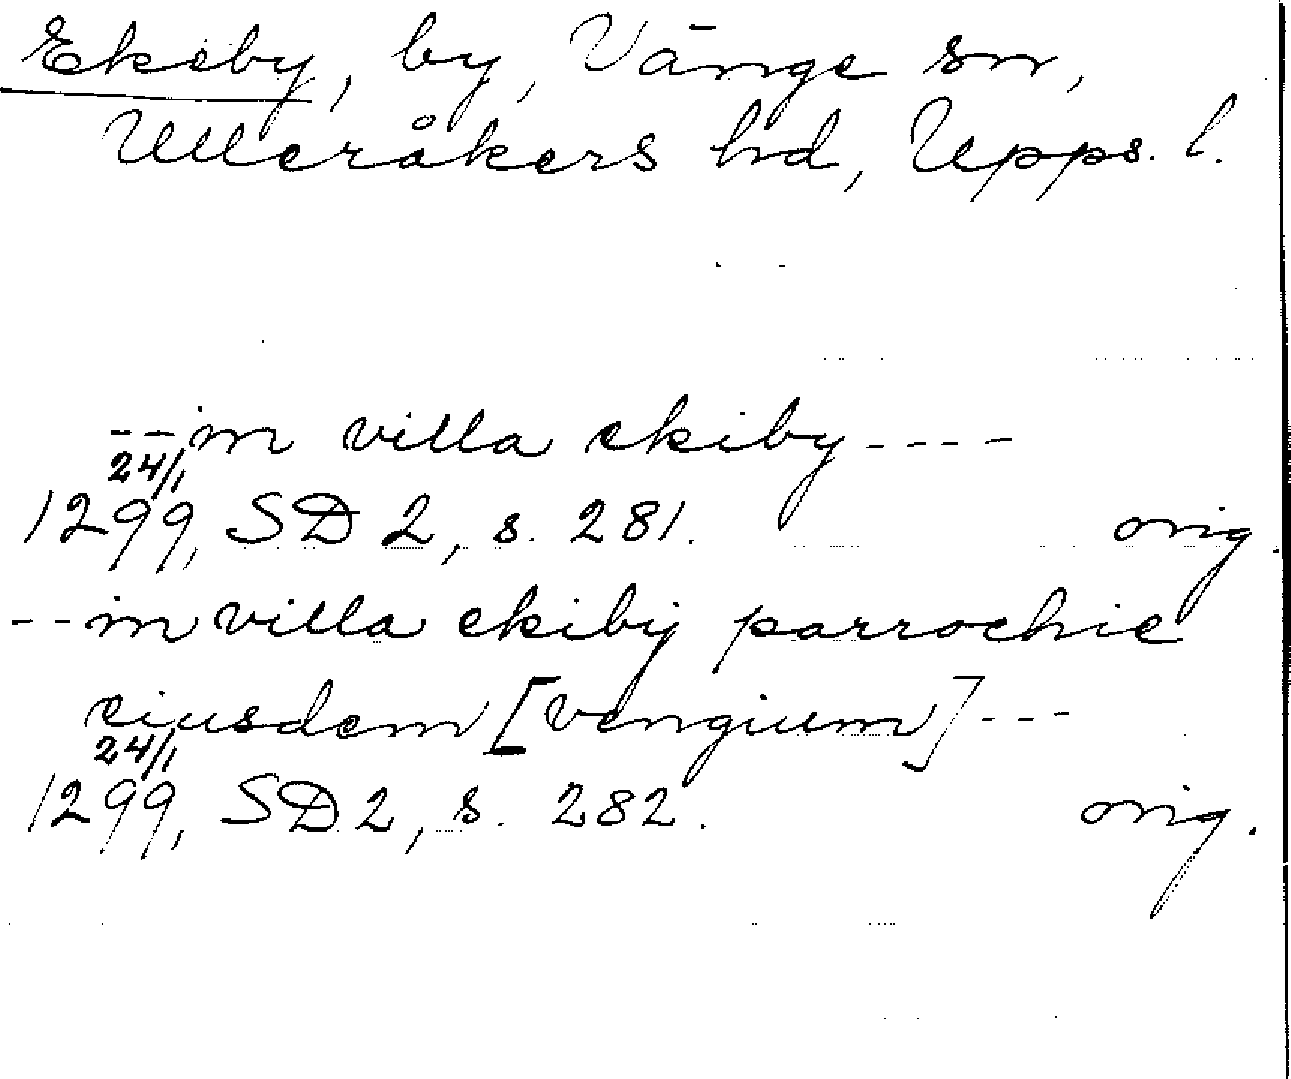 Ekeby, by, Vänge sn,
Ulleråkers hd, Upps. l.
-- in villa ekiby ----
24/1
1299, SD 2, s. 281. orig.
-- in villa ekibij parrochie
eiusdem [vengium] ---
24/1
1299, SD 2, s. 282. orig.